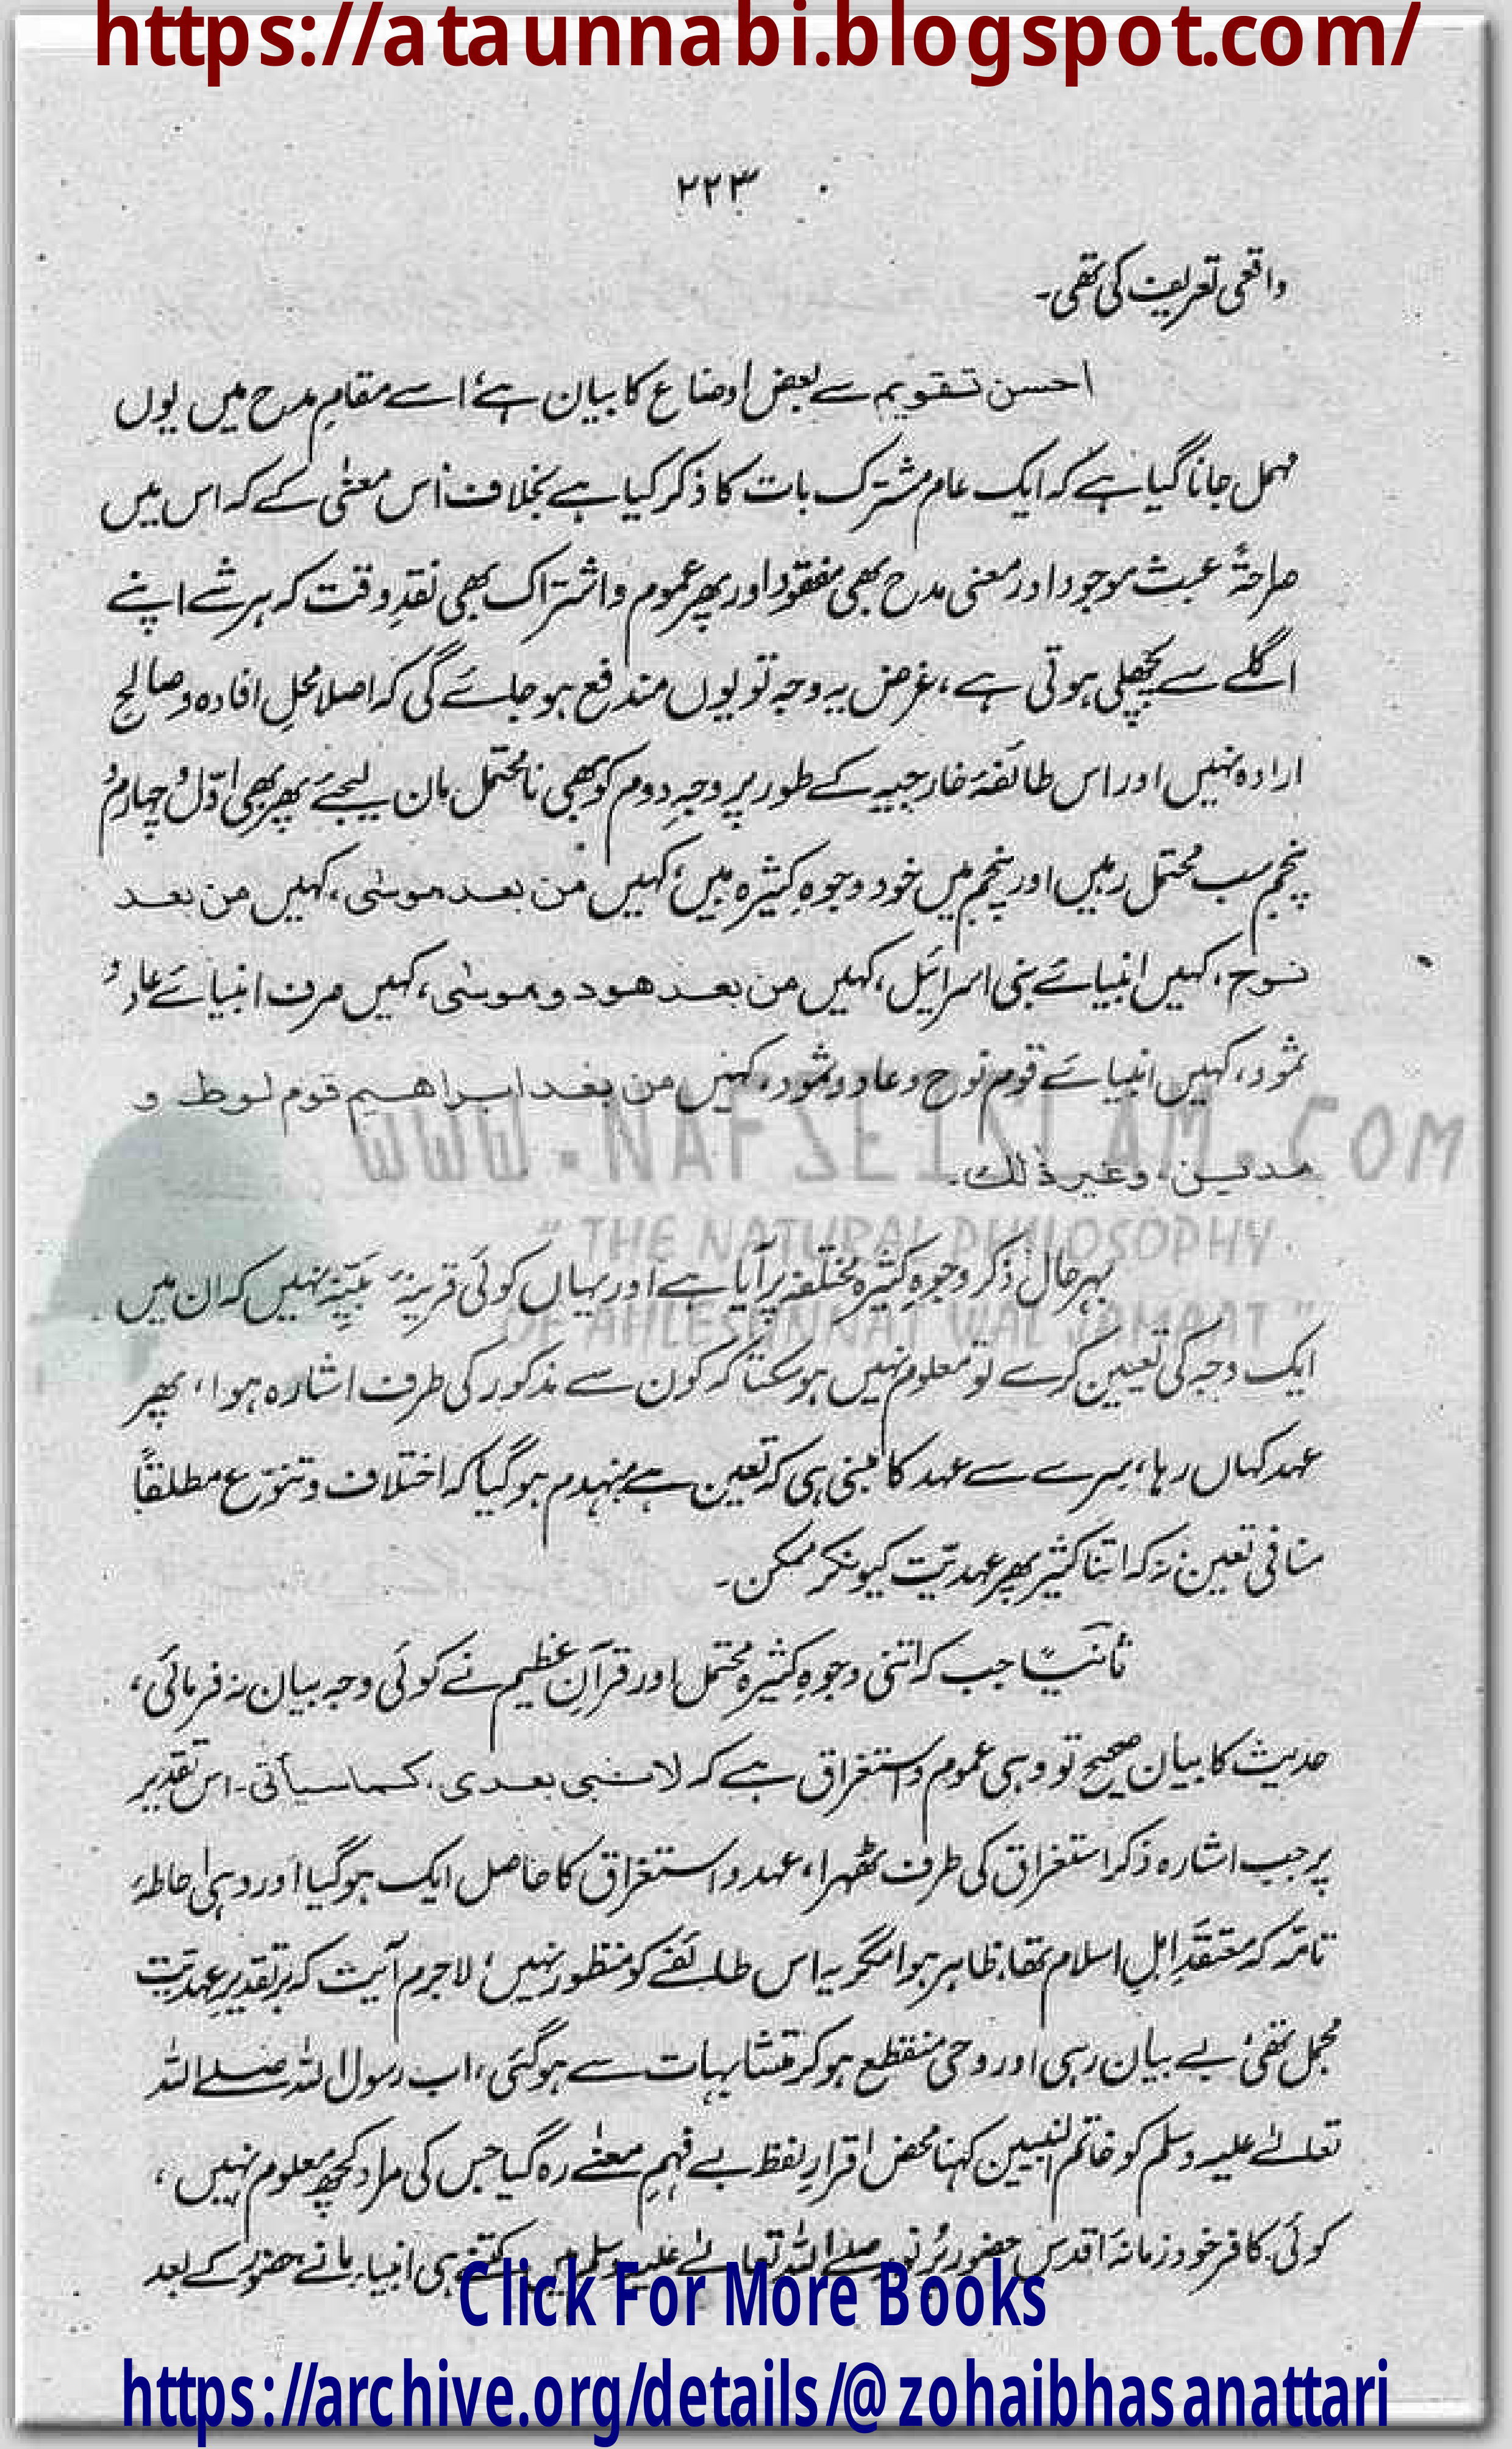 https://ataunnabi.blogspot.com/
۲۲۳
واقعی تعریف کی تھی۔
احسن تقویم سے بعض اوضاع کا بیان ہے، اسے مقامِ مدح میں یوں
مہمل جانا گیا ہے کہ ایک عام مشترک بات کا ذکر کیا ہے بخلاف اُس معنٰی کے کہ اس میں
صراحۃً عبث موجود اور معنی مدح بھی مفقود اور پھر عموم و اشتراک بھی نقدِ وقت کہ ہر شے اپنے
اگلے سے پچھلی ہوتی ہے، غرض یہ وجہ تو یوں مندفع ہو جائے گی کہ اصلا محلِ افادہ و صالح
ارادہ نہیں اور اس طائفۂ خارجیہ کے طور پر وجہِ دوم کو بھی نامحتمل مان لیجئے پھر بھی اوّل و چہارم و
پنجم سب محتمل رہیں اور پنجم میں خود وجوہِ کثیرہ ہیں، کہیں من بعد موسٰی، کہیں من بعد
نوح، کہیں انبیائے بنی اسرائیل، کہیں من بعد ھود و موسٰی، کہیں صرف انبیائے عاد و
ثمود، کہیں انبیائے قومِ نوح و عاد و ثمود، کہیں من بعد ابراھیم قوم لوط و
مدین، وغیر ذٰلک۔
WWW.NAFSEISLAM.COM
"THE NATURAL PHILOSOPHY
OF AHLESUNNAT WAL JAMAAT"
بہرحال ذکر وجوہِ کثیرہ مختلفہ پر آیا ہے اور یہاں کوئی قرینۂ مبیّنہ نہیں کہ ان میں
ایک وجہ کی تعیین کرے تو معلوم نہیں ہو سکتا کہ کون سے مذکور کی طرف اشارہ ہوا، پھر
عہد کہاں رہا، سرے سے عہد کا مبنی ہی کہ تعین ہے منہدم ہو گیا کہ اختلاف و تنوّع مطلقاً
منافی تعین نہ کہ اتنا کثیر پھر عہدیّت کیونکر ممکن۔
ثانیًا جب کہ اتنی وجوہِ کثیرہ محتمل اور قرآنِ عظیم نے کوئی وجہ بیان نہ فرمائی،
حدیث کا بیان صحیح تو وہی عموم و استغراق ہے کہ لا نبی بعدی، کما سیأتی۔ اس تقدیر
پر جب اشارہ ذکر استغراق کی طرف ٹھہرا، عہد و استغراق کا حاصل ایک ہو گیا اور وہی احاطۂ
تامّہ کہ معتقَدِ اہلِ اسلام تھا ظاہر ہوا مگر یہ اس طائفے کو منظور نہیں، لاجرم آیت کہ برتقدیرِ عہدیّت
مجمل تھی، بے بیان رہی اور وحی منقطع ہو کر متشابہات سے ہو گئی، اب رسول اللہ صلے اللہ
تعالٰے علیہ وسلم کو خاتم النبیین کہنا محض اقرارِ لفظ بے فہمِ معنٰے رہ گیا جس کی مراد کچھ معلوم نہیں،
کوئی کافر خود زمانۂ اقدس حضور پُرنور صلے اللہ تعالٰے علیہ وسلم میں کتنے ہی انبیاء مانے، حضور کے بعد
Click For More Books
https://archive.org/details/@zohaibhasanattari